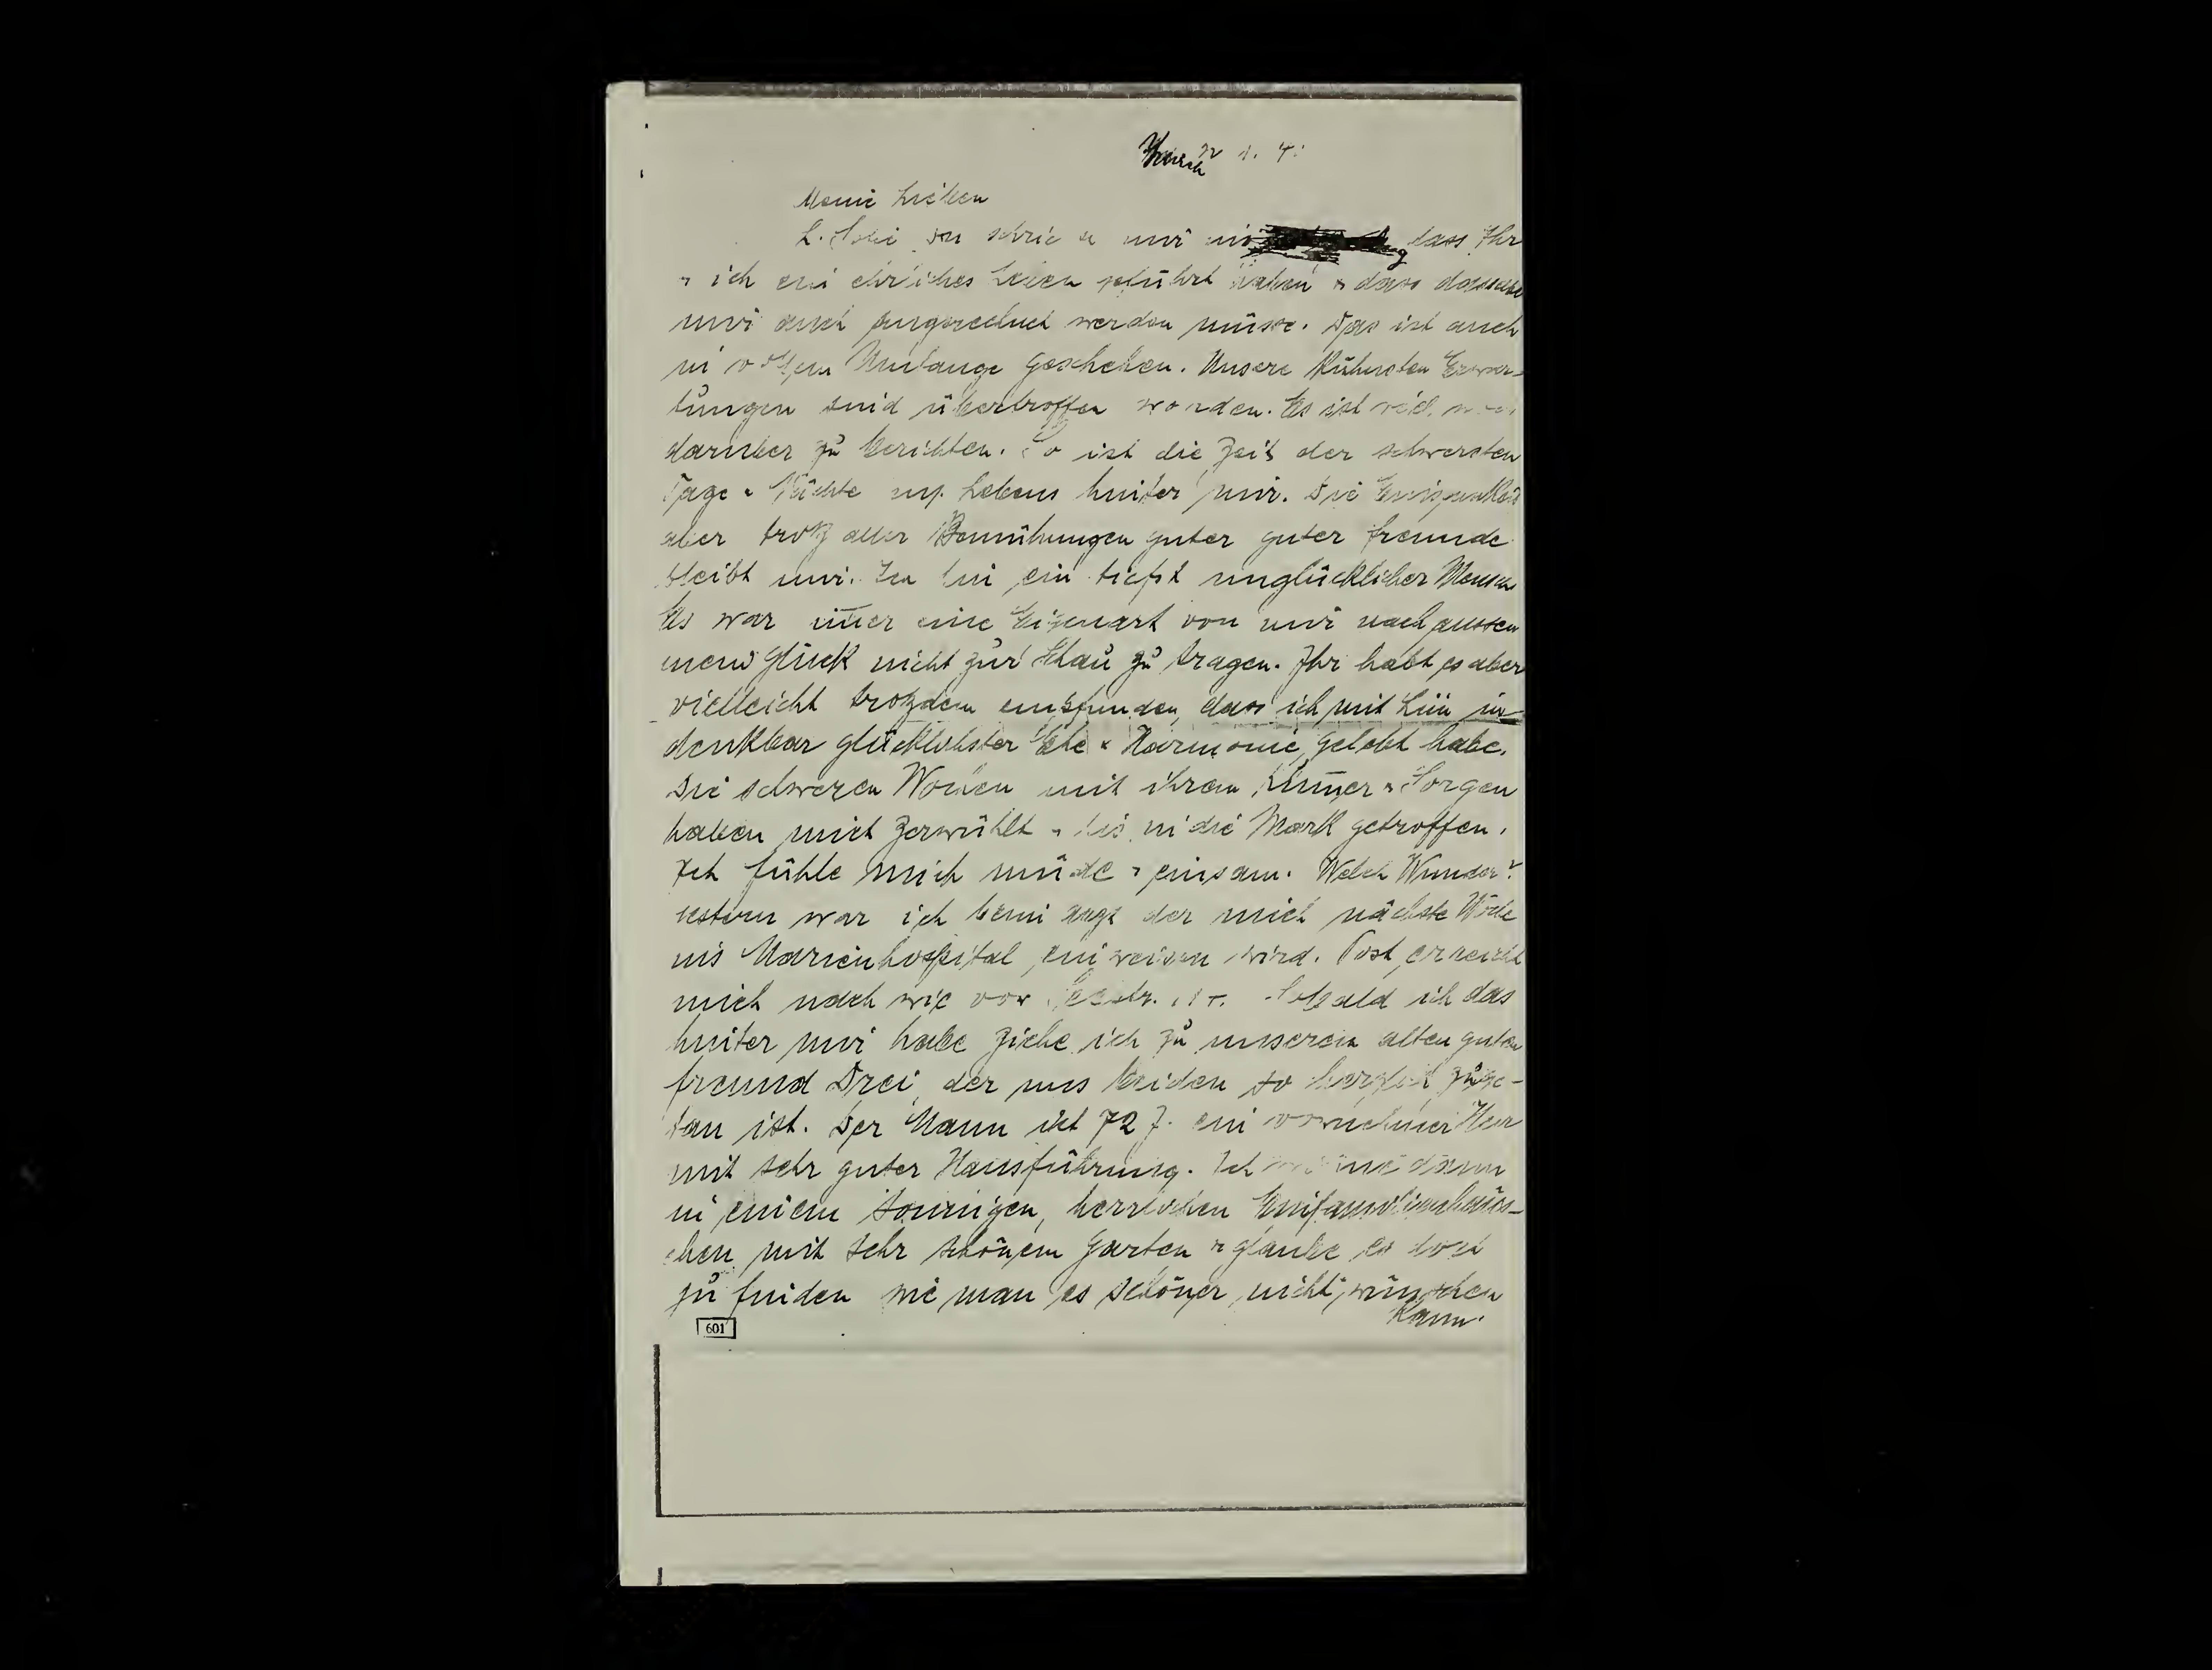 Meine Lieben
L. du schriebst mir dass Ihr
u ich ein ehrliches Leben geführt haben u dass dasselbe
mir auch angerechnet werden müsse. Das ist auch
in vollem Umfange geschehen. Unsere Kühnsten Erwar-
tungen sind übertroffen worden. Es ist
darüber zu berichten. So ist die Zeit der schwersten
Tage u Nächte Lebens hinter mir. Die Einsamkeit
aber trotz aller Bemühungen guter guter freunde
bleibt mir. Ich bin ein tiefst unglücklicher Mensch
Es war im̄er eine Eigenart von mir nach aussen
mein Glück nicht zur Schau zu tragen. Ihr habt es aber
vielleicht trotzdem empfunden, dass ich mit in
denkbar glücklichster Ehe u Harmonie gelebt habe.
Die schweren Wochen mit ihrem Kum̄er u Sorgen
haben mich zerwühlt u bis in die Mark getroffen.
Ich fühle mich müde u einsam. Welch Wunder?
Gestern war ich beim Arzt der mich nächste Woche
ins Marienhospital einweisen wird. Post erreicht
mich nach wie vor Sobald ich das
hinter mir habe ziehe ich zu unserem alten guten
freund Drei, der uns beiden so herzlich zuge-
tan ist. Der Mann ist 72 J. ein vornehmer Herr
mit sehr guter Hausführung. Ich dann
in einem sonnigen, herrlichen Einfamilienhäus-
chen mit sehr schönem Garten u glaube es dort
zu finden wie man es schöner nicht wünschen
Kann.
601